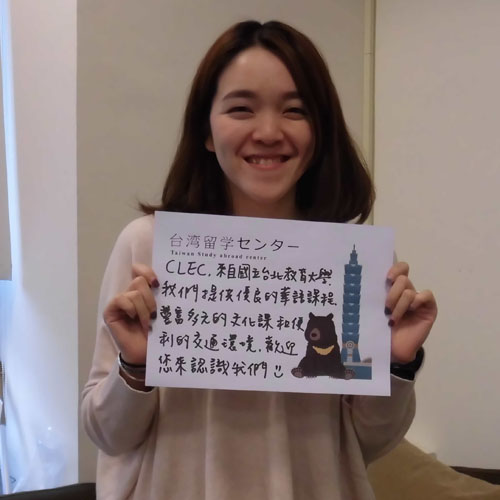 台湾留学センター
Taiwan Study abroad center
CLEC, 來自國立台北教育大學,
我們提供優良的華語課程,
豐富多元的文化課和便
利的交通環境,歡迎
您來認識我們!